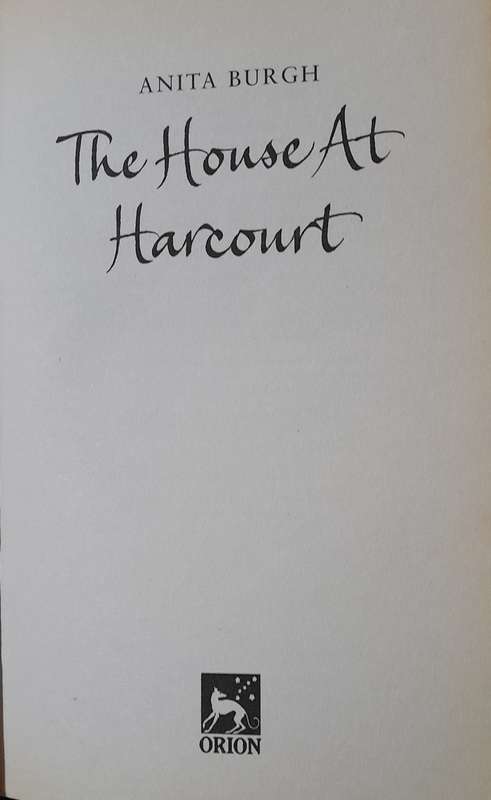 ANITA BURGH
The House At
Harcourt
ORION